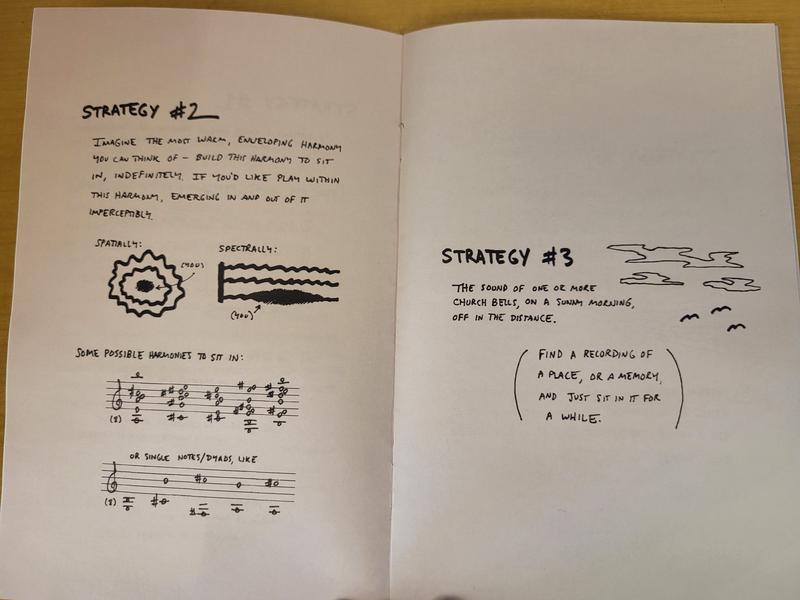 STRATEGY #2
IMAGINE THE MOST WARM, ENVELOPING HARMONY
YOU CAN THINK OF – BUILD THIS HARMONY TO SIT
IN, INDEFINITELY. IF YOU'D LIKE PLAY WITHIN
THIS HARMONY, EMERGING IN AND OUT OF IT
IMPERCEPTIBLY.
SPATIALLY:
(YOU)
SPECTRALLY:
(YOU)
SOME POSSIBLE HARMONIES TO SIT IN:
(8)
OR SINGLE NOTES/DYADS, LIKE
(8)
STRATEGY #3
THE SOUND OF ONE OR MORE
CHURCH BELLS, ON A SUNNY MORNING,
OFF IN THE DISTANCE.
(FIND A RECORDING OF
A PLACE, OR A MEMORY,
AND JUST SIT IN IT FOR
A WHILE.)